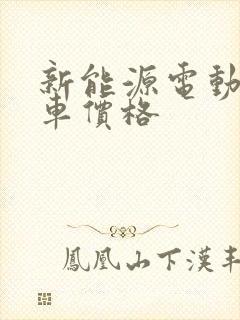 新能源電動
車價格
鳳凰山下漢丰